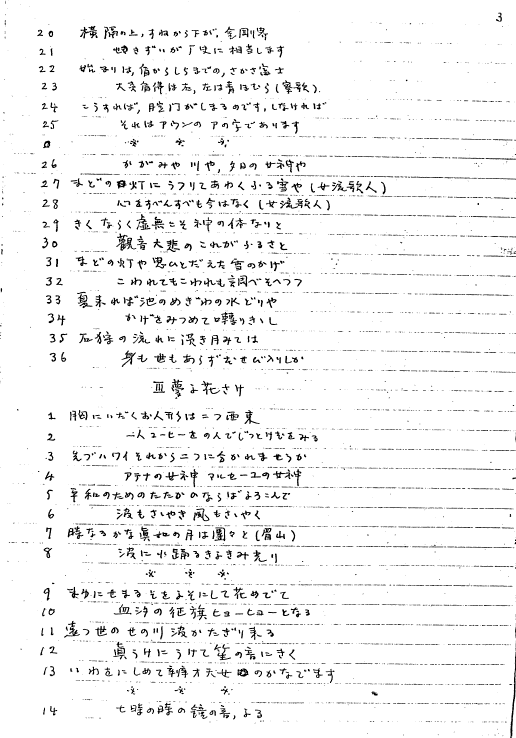 3
20 横隔の上,すねから下が,金剛界
21 焼きずいが 歴史に相当します
22 始まりは,肩からしりまでの,さかさ富士
23 大矣 は左,右は青ほむら (寮歌).
24 こうすれば,肛門がしまるのです,しなければ
25 それはアウンの アの字であります
26 かがみや 川や,夕日の女神や
27 まどの灯にうつりてあわくふる雪や (女流歌人)
28 心をすべんすべも今はなく (女流歌人)
29 きくならく虚無こそ神の体なりと
30 観音大悲のこれがふるさと
31 まどの灯や思ひとだえた雪のかげ
32 こわれてもこわれも調べそへつつ
33 夏来れば池のめぎわの水どりや
34 かげをみつめて囀りきいし
35 石狩の流れに淡き月みては
36 身も世もあらずむせび入りしか
Ⅲ 夢よ花さけ
1 胸にいだくお人形は二つ西東
2 一人コーヒーをのんでじっとけむをみる
3 先づハワイそれから二つに分かれませうか
4 アテナの女神 マルセーユの女神
5 平和のためのたたかひならばよろこんで
6 波もさゝやき風もさゝやく
7 時なるかな真如の月は團々と (眉山)
8 波に 踊るきよきみ光り
9 まぢにせまるそをよそにして花めでて
10 血汐の征旗ヒョーヒョーとなる
11 遠つ世のせの川波かたぎり来る
12 真うけにうけて笙の音にきく
13 いわをにしめて辯才天女のかなでます
14 七時の時の鐘の音,よる